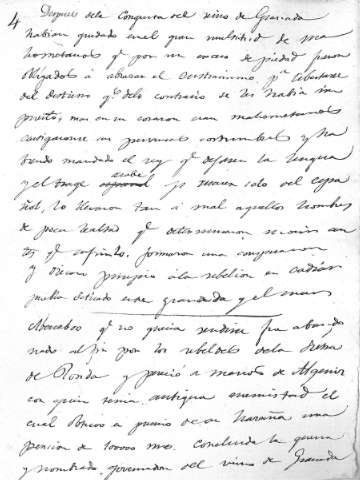 4 Despues dela Conquista del reino de Granada
habian quedado en el gran multitud de ma
hometanos qe por un exceso de piedad fueron
obligados á abrazar el Cristianismo pa libertarse
del destierro qe delo contrario se les habia im
puesto, mas en su corazon eran mahometanos
sus costumbres y ha
biendo mandado el rey qe dejasen la lengua
y el trage arabe y usasen solo del espa
ñol, lo llevaron tan á mal aquellos hombres
de poca lealtad qe determinaron morir an
tes qe sufrirlo. formaron una conspiracion
y dieron principio á la rebelion en
pueblo situado entre granada y el mar
qe no queria rendirse fue abando
nado al fin por los rebeldes dela Sierra
de Ronda y pereció a manos de
con quien tenia antigua enemistad el
cual obtuvo en premio de su hazaña una
pension de mrs. Concluida la guerra
y nombrado governador del reino de Granada